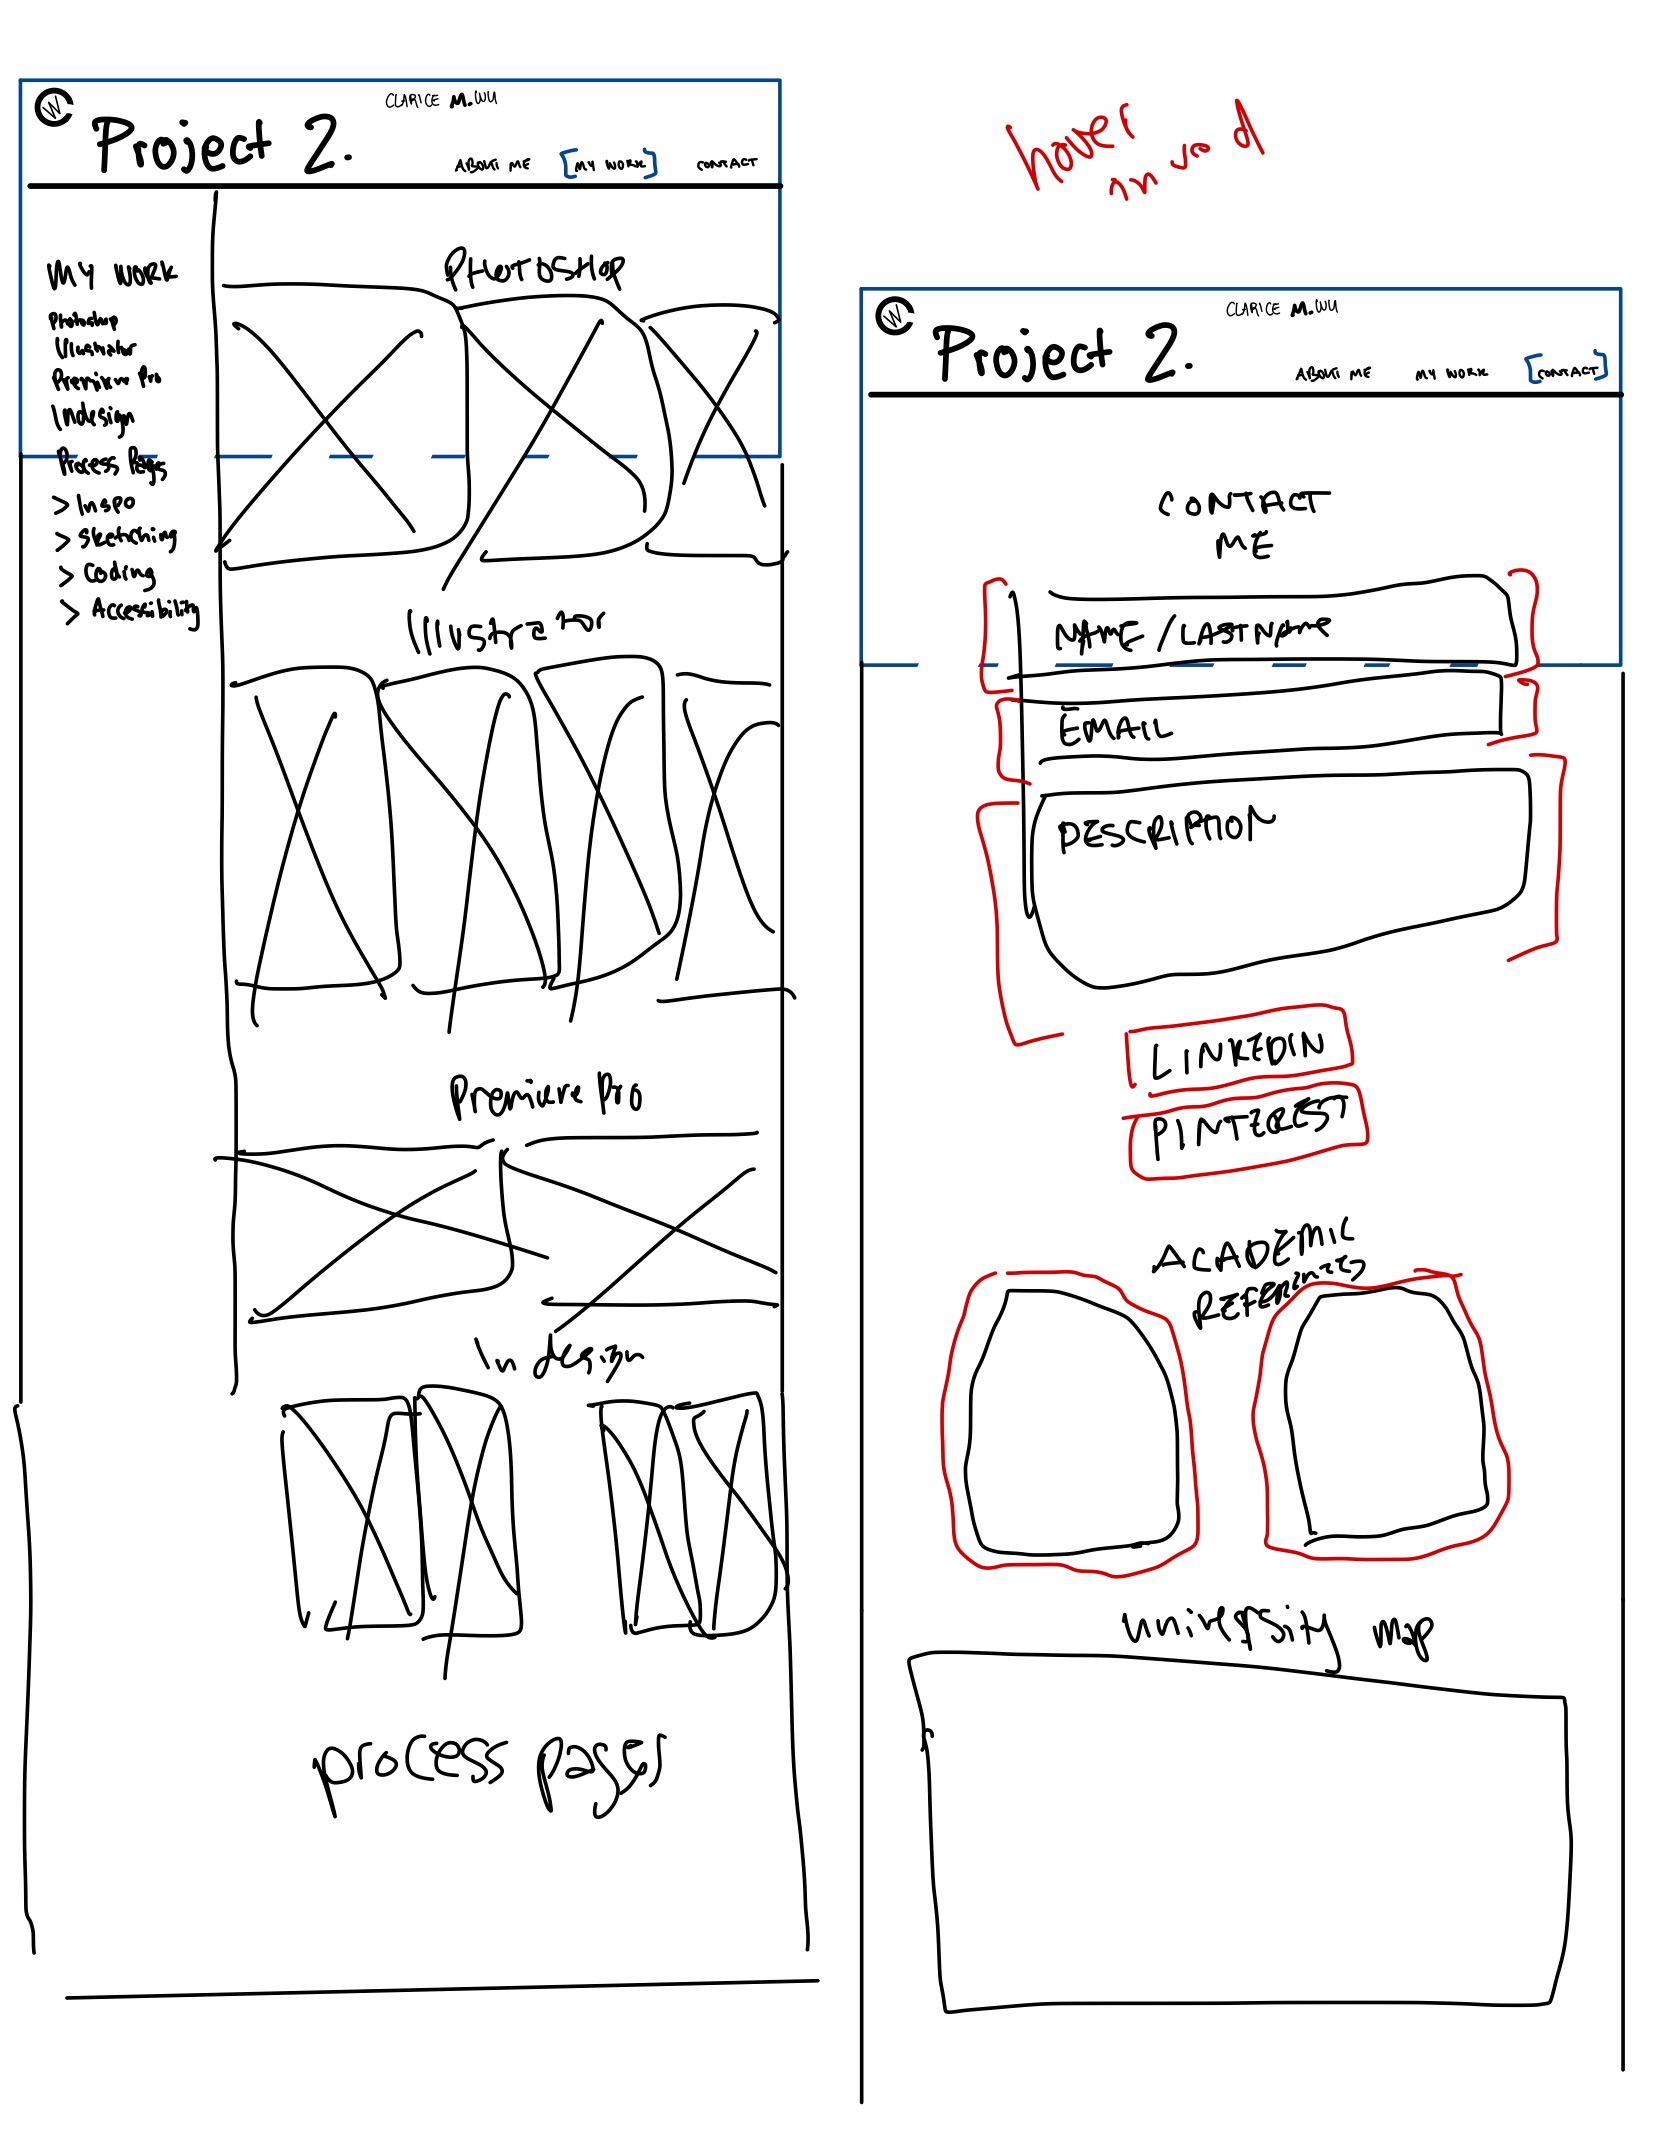 CW
CLARICE M. WU
Project 2.
ABOUT ME [MY WORK] CONTACT
MY WORK
Photoshop
Illustrator
Premiere Pro
Indesign
Process Pages
> Inspo
> Sketching
> Coding
> Accessibility
PHOTOSHOP
Illustrator
Premiere Pro
Indesign
process pages
hover
in red
CW
CLARICE M. WU
Project 2.
ABOUT ME MY WORK [CONTACT]
CONTACT
ME
NAME / LASTNAME
EMAIL
DESCRIPTION
LINKEDIN
PINTEREST
ACADEMIC
REFERENCES
university map